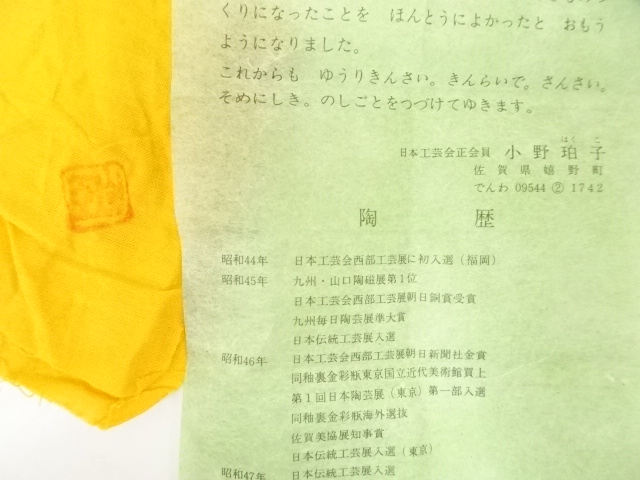 くりになったことを　ほんとうによかったと　おもう
ようになりました。
これからも　ゆうりきんさい。きんらいで。さんさい。
そめにしき。のしごとをつづけてゆきます。
日本工芸会正会員　小野珀子
はくこ
佐賀県嬉野町
でんわ 09544 ② 1742
陶　歴
昭和44年　日本工芸会西部工芸展に初入選（福岡）
昭和45年　九州・山口陶磁展第1位
日本工芸会西部工芸展朝日銅賞受賞
九州毎日陶芸展準大賞
日本伝統工芸展入選
昭和46年　日本工芸会西部工芸展朝日新聞社金賞
同釉裏金彩瓶東京国立近代美術館買上
第1回日本陶芸展（東京）第一部入選
同釉裏金彩瓶海外選抜
佐賀美協展知事賞
日本伝統工芸展入選（東京）
昭和47年　日本伝統工芸展入選